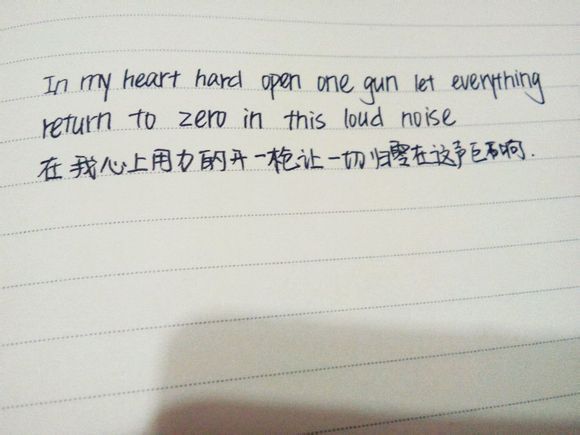 In my heart hard open one gun let everything
return to zero in this loud noise
在我心上用力的开一枪让一切归零在这声巨响.